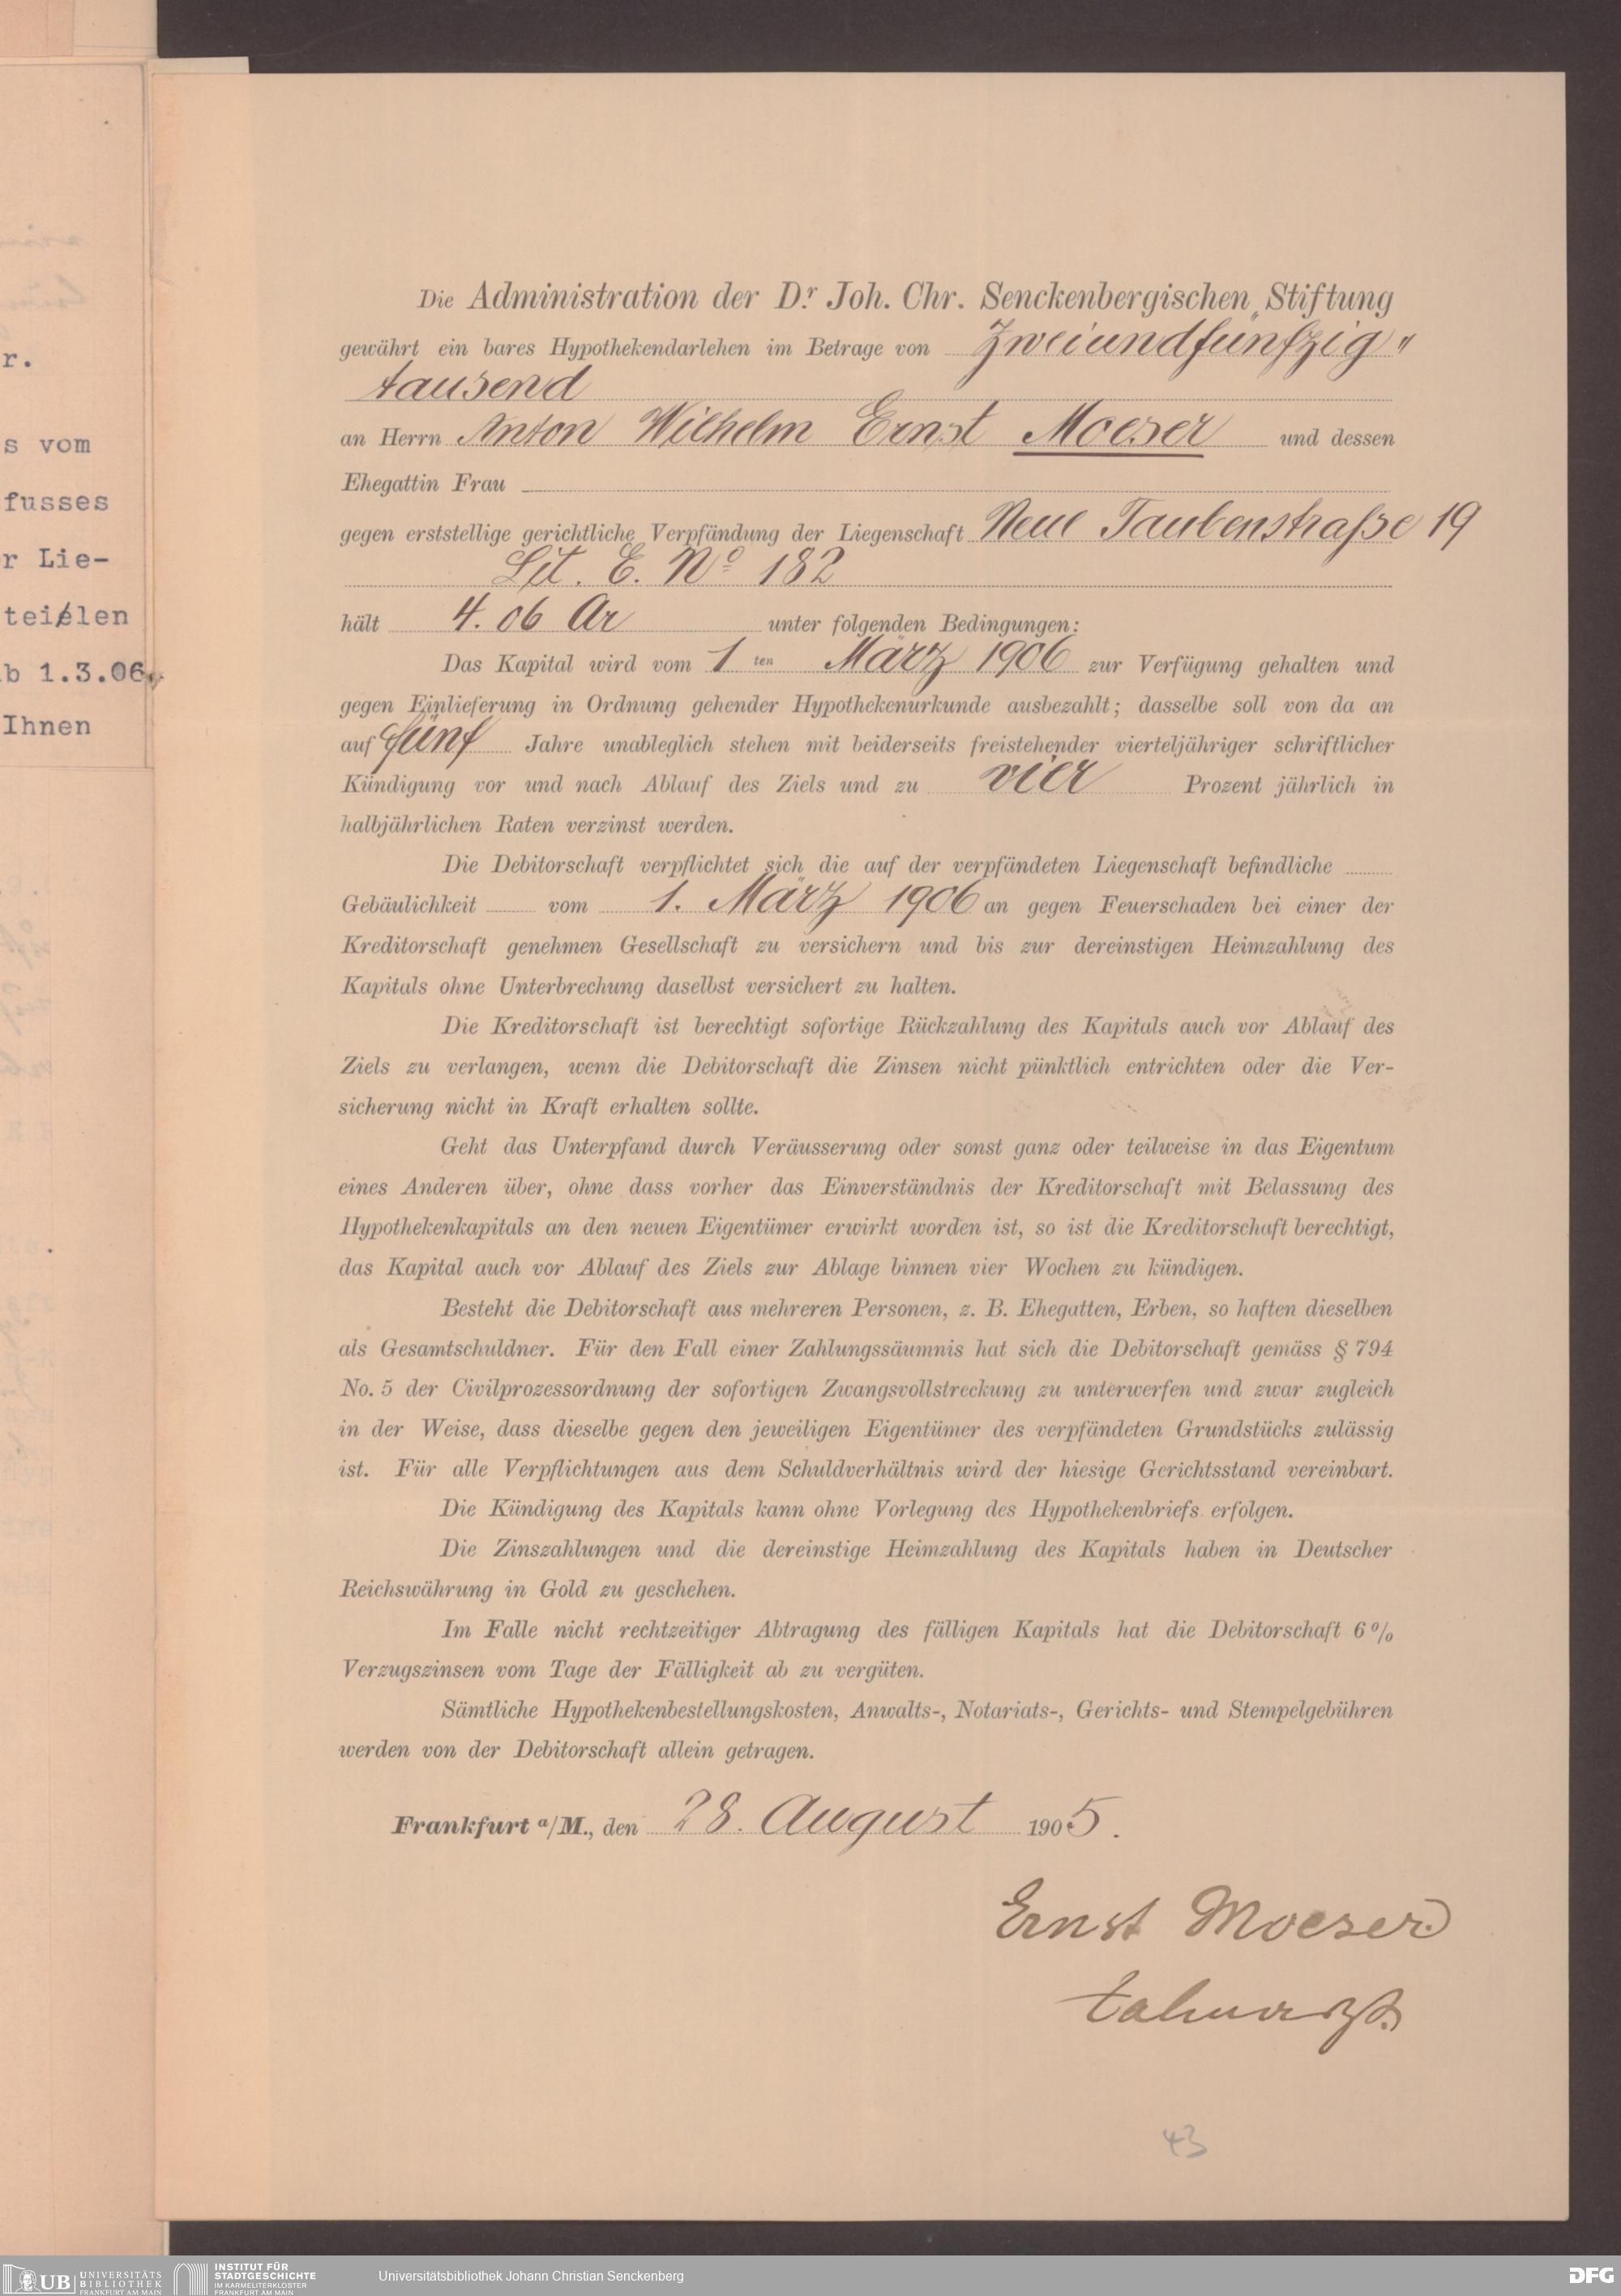 r.
s vom
fusses
r Lie-
teilen
b 1.3.06.
Ihnen
Die Administration der Dr. Joh. Chr. Senckenbergischen Stiftung
gewährt ein bares Hypothekendarlehen im Betrage von Zweiundfünfzig"
tausend
an Herrn Anton Wilhelm Ernst Moeser und dessen
Ehegattin Frau
gegen erststellige gerichtliche Verpfändung der Liegenschaft Neue Taubenstraße 19
Lit. E. No 182
hält 4.06 Ar unter folgenden Bedingungen:
Das Kapital wird vom 1 ten März 1906 zur Verfügung gehalten und
gegen Einlieferung in Ordnung gehender Hypothekenurkunde ausbezahlt; dasselbe soll von da an
auf fünf Jahre unableglich stehen mit beiderseits freistehender vierteljähriger schriftlicher
Kündigung vor und nach Ablauf des Ziels und zu vier Prozent jährlich in
halbjährlichen Raten verzinst werden.
Die Debitorschaft verpflichtet sich die auf der verpfändeten Liegenschaft befindliche
Gebäulichkeit vom 1. März 1906 an gegen Feuerschaden bei einer der
Kreditorschaft genehmen Gesellschaft zu versichern und bis zur dereinstigen Heimzahlung des
Kapitals ohne Unterbrechung daselbst versichert zu halten.
Die Kreditorschaft ist berechtigt sofortige Rückzahlung des Kapitals auch vor Ablauf des
Ziels zu verlangen, wenn die Debitorschaft die Zinsen nicht pünktlich entrichten oder die Ver-
sicherung nicht in Kraft erhalten sollte.
Geht das Unterpfand durch Veräusserung oder sonst ganz oder teilweise in das Eigentum
eines Anderen über, ohne dass vorher das Einverständnis der Kreditorschaft mit Belassung des
Hypothekenkapitals an den neuen Eigentümer erwirkt worden ist, so ist die Kreditorschaft berechtigt,
das Kapital auch vor Ablauf des Ziels zur Ablage binnen vier Wochen zu kündigen.
Besteht die Debitorschaft aus mehreren Personen, z. B. Ehegatten, Erben, so haften dieselben
als Gesamtschuldner. Für den Fall einer Zahlungssäumnis hat sich die Debitorschaft gemäss § 794
No. 5 der Civilprozessordnung der sofortigen Zwangsvollstreckung zu unterwerfen und zwar zugleich
in der Weise, dass dieselbe gegen den jeweiligen Eigentümer des verpfändeten Grundstücks zulässig
ist. Für alle Verpflichtungen aus dem Schuldverhältnis wird der hiesige Gerichtsstand vereinbart.
Die Kündigung des Kapitals kann ohne Vorlegung des Hypothekenbriefs erfolgen.
Die Zinszahlungen und die dereinstige Heimzahlung des Kapitals haben in Deutscher
Reichswährung in Gold zu geschehen.
Im Falle nicht rechtzeitiger Abtragung des fälligen Kapitals hat die Debitorschaft 6 %
Verzugszinsen vom Tage der Fälligkeit ab zu vergüten.
Sämtliche Hypothekenbestellungskosten, Anwalts-, Notariats-, Gerichts- und Stempelgebühren
werden von der Debitorschaft allein getragen.
Frankfurt a/M., den 28. August 1905.
Ernst Moeser
43
UB UNIVERSITÄTS
BIBLIOTHEK
FRANKFURT AM MAIN
INSTITUT FÜR
STADTGESCHICHTE
IM KARMELITERKLOSTER
FRANKFURT AM MAIN
Universitätsbibliothek Johann Christian Senckenberg
DFG